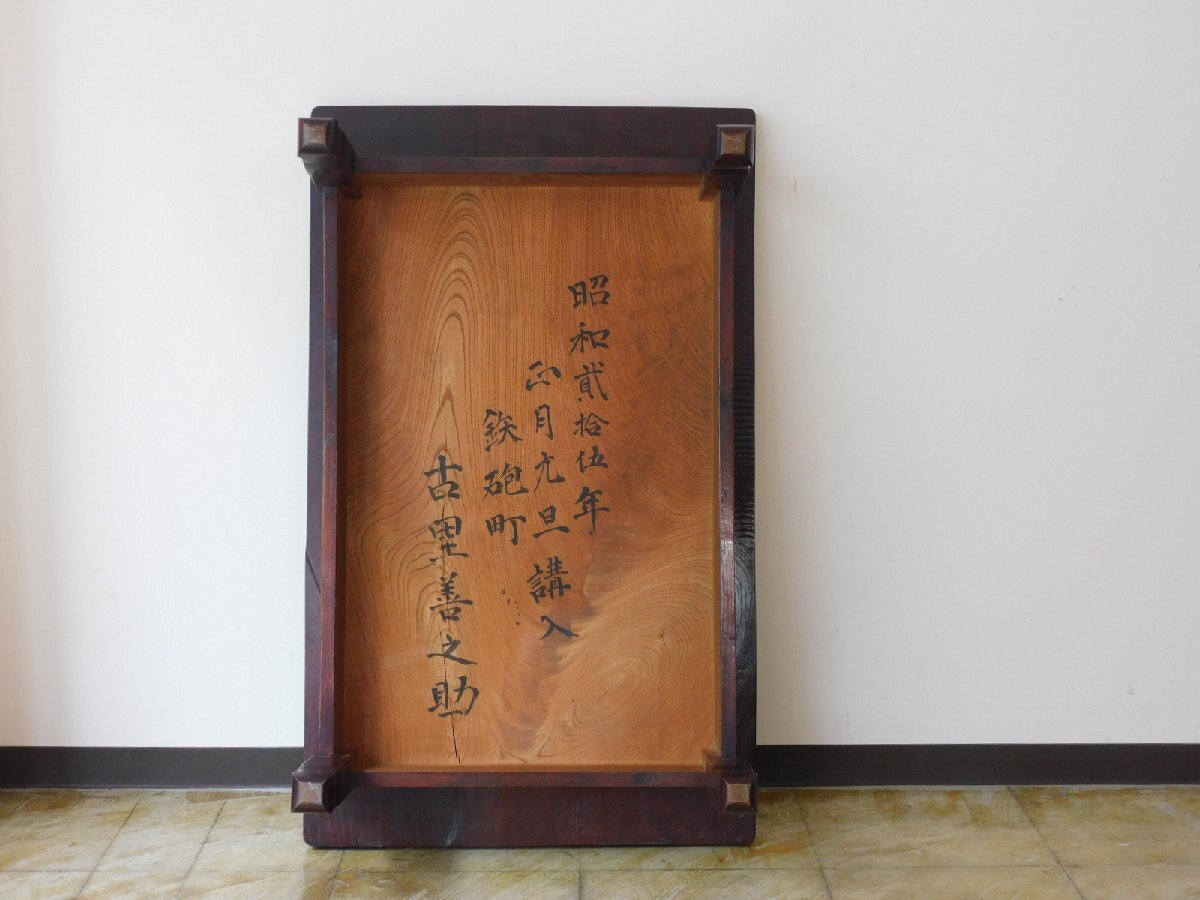 昭和貳拾伍年
正月元旦講入
鉄砲町
古里善之助